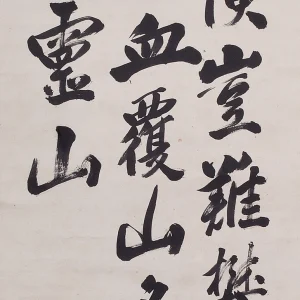 豈難
血覆山
靈山